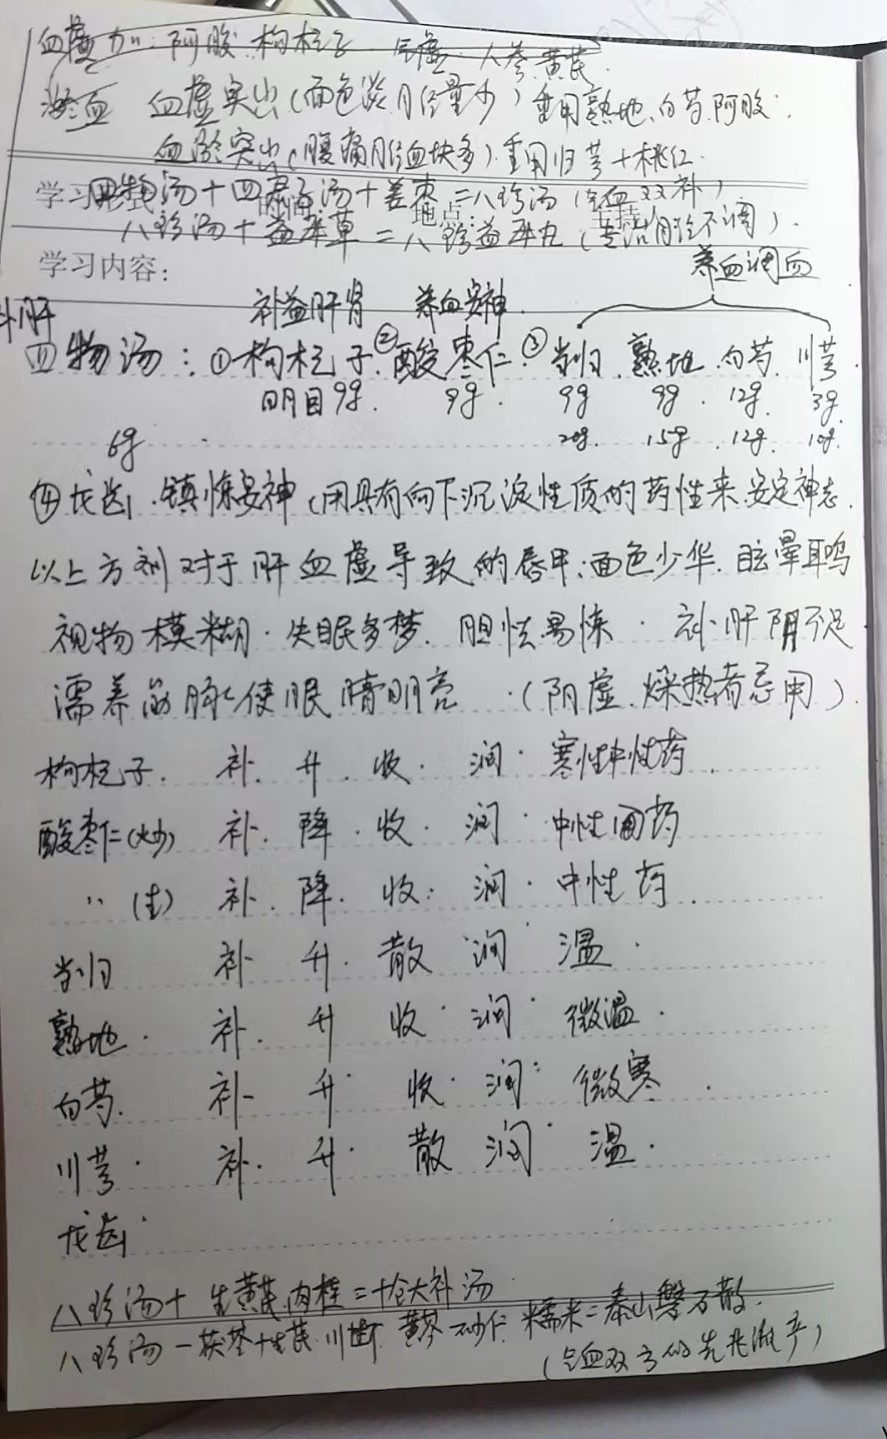 血虚加：阿胶 枸杞子 气虚 人参 黄芪.
淤血 血虚突出(面色淡月经量少)重用熟地、白芍、阿胶.
血淤突出(腹痛 血块多).重用归芎+桃红.
四物汤+四君子汤+姜枣=八珍汤(气血双补)
学习 时间 地点: 主持
八珍汤+益母草=八珍益母丸(专治月经不调).
学习内容: 养血调血
补肝 补益肝肾 养血安神.
四物汤:①枸杞子.②酸枣仁.③当归.熟地.白芍.川芎.
明目9g. 9g. 9g 9g. 12g. 3g
6g 20g. 15g. 12g. 10g.
④龙齿.镇惊安神(用具有向下沉淀性质的药性来安定神志.
以上方剂对于肝血虚导致的唇甲.面色少华.眩晕耳鸣
视物模糊.失眠多梦.胆怯易惊.补肝阴不足
濡养筋脉使眼睛明亮.(阴虚.燥热者忌用).
枸杞子. 补. 升. 收. 润. 寒性中性药.
酸枣仁(炒) 补. 降. 收. 润. 中性 药
〃(生) 补. 降. 收. 润. 中性药.
当归 补 升. 散 润 温.
熟地. 补. 升 收. 润. 微温.
白芍. 补 升. 收. 润. 微寒.
川芎. 补. 升. 散 润. 温.
龙齿.
八珍汤+生黄芪.肉桂=十全大补汤
八珍汤-茯苓+生芪.川断.黄芩.砂仁.糯米=泰山磐石散.
(气血双亏的先兆流产)